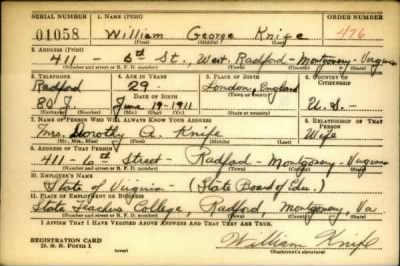 SERIAL NUMBER 1. NAME (Print) ORDER NUMBER
01058 William George Knife 476
(First) (Middle) (Last)
2. ADDRESS (Print)
411 - 6th St., West Radford - Montgomery - Virginia
(Number and street or R. F. D. number) (Town) (County) (State)
3. TELEPHONE 4. AGE IN YEARS 5. PLACE OF BIRTH 6. COUNTRY OF CITIZENSHIP
Radford 29 - London, England
DATE OF BIRTH (Town or county)
80 J June 19 - 1911 U. S. -
(Exchange) (Number) (Mo.) (Day) (Yr.) (State or country)
7. NAME OF PERSON WHO WILL ALWAYS KNOW YOUR ADDRESS 8. RELATIONSHIP OF THAT PERSON
Mrs. Dorothy A. Knife Wife
(Mr., Mrs., Miss) (First) (Middle) (Last)
9. ADDRESS OF THAT PERSON
411 - 6th Street - Radford - Montgomery - Virginia
(Number and street or R. F. D. number) (Town) (County) (State)
10. EMPLOYER'S NAME
State of Virginia - (State Board of Edu.)
11. PLACE OF EMPLOYMENT OR BUSINESS
State Teachers College, Radford, Montgomery, Va
(Number and street or R. F. D. number) (Town) (County) (State)
I AFFIRM THAT I HAVE VERIFIED ABOVE ANSWERS AND THAT THEY ARE TRUE.
William Knife
REGISTRATION CARD
D. S. S. Form 1 (over) (Registrant's signature)